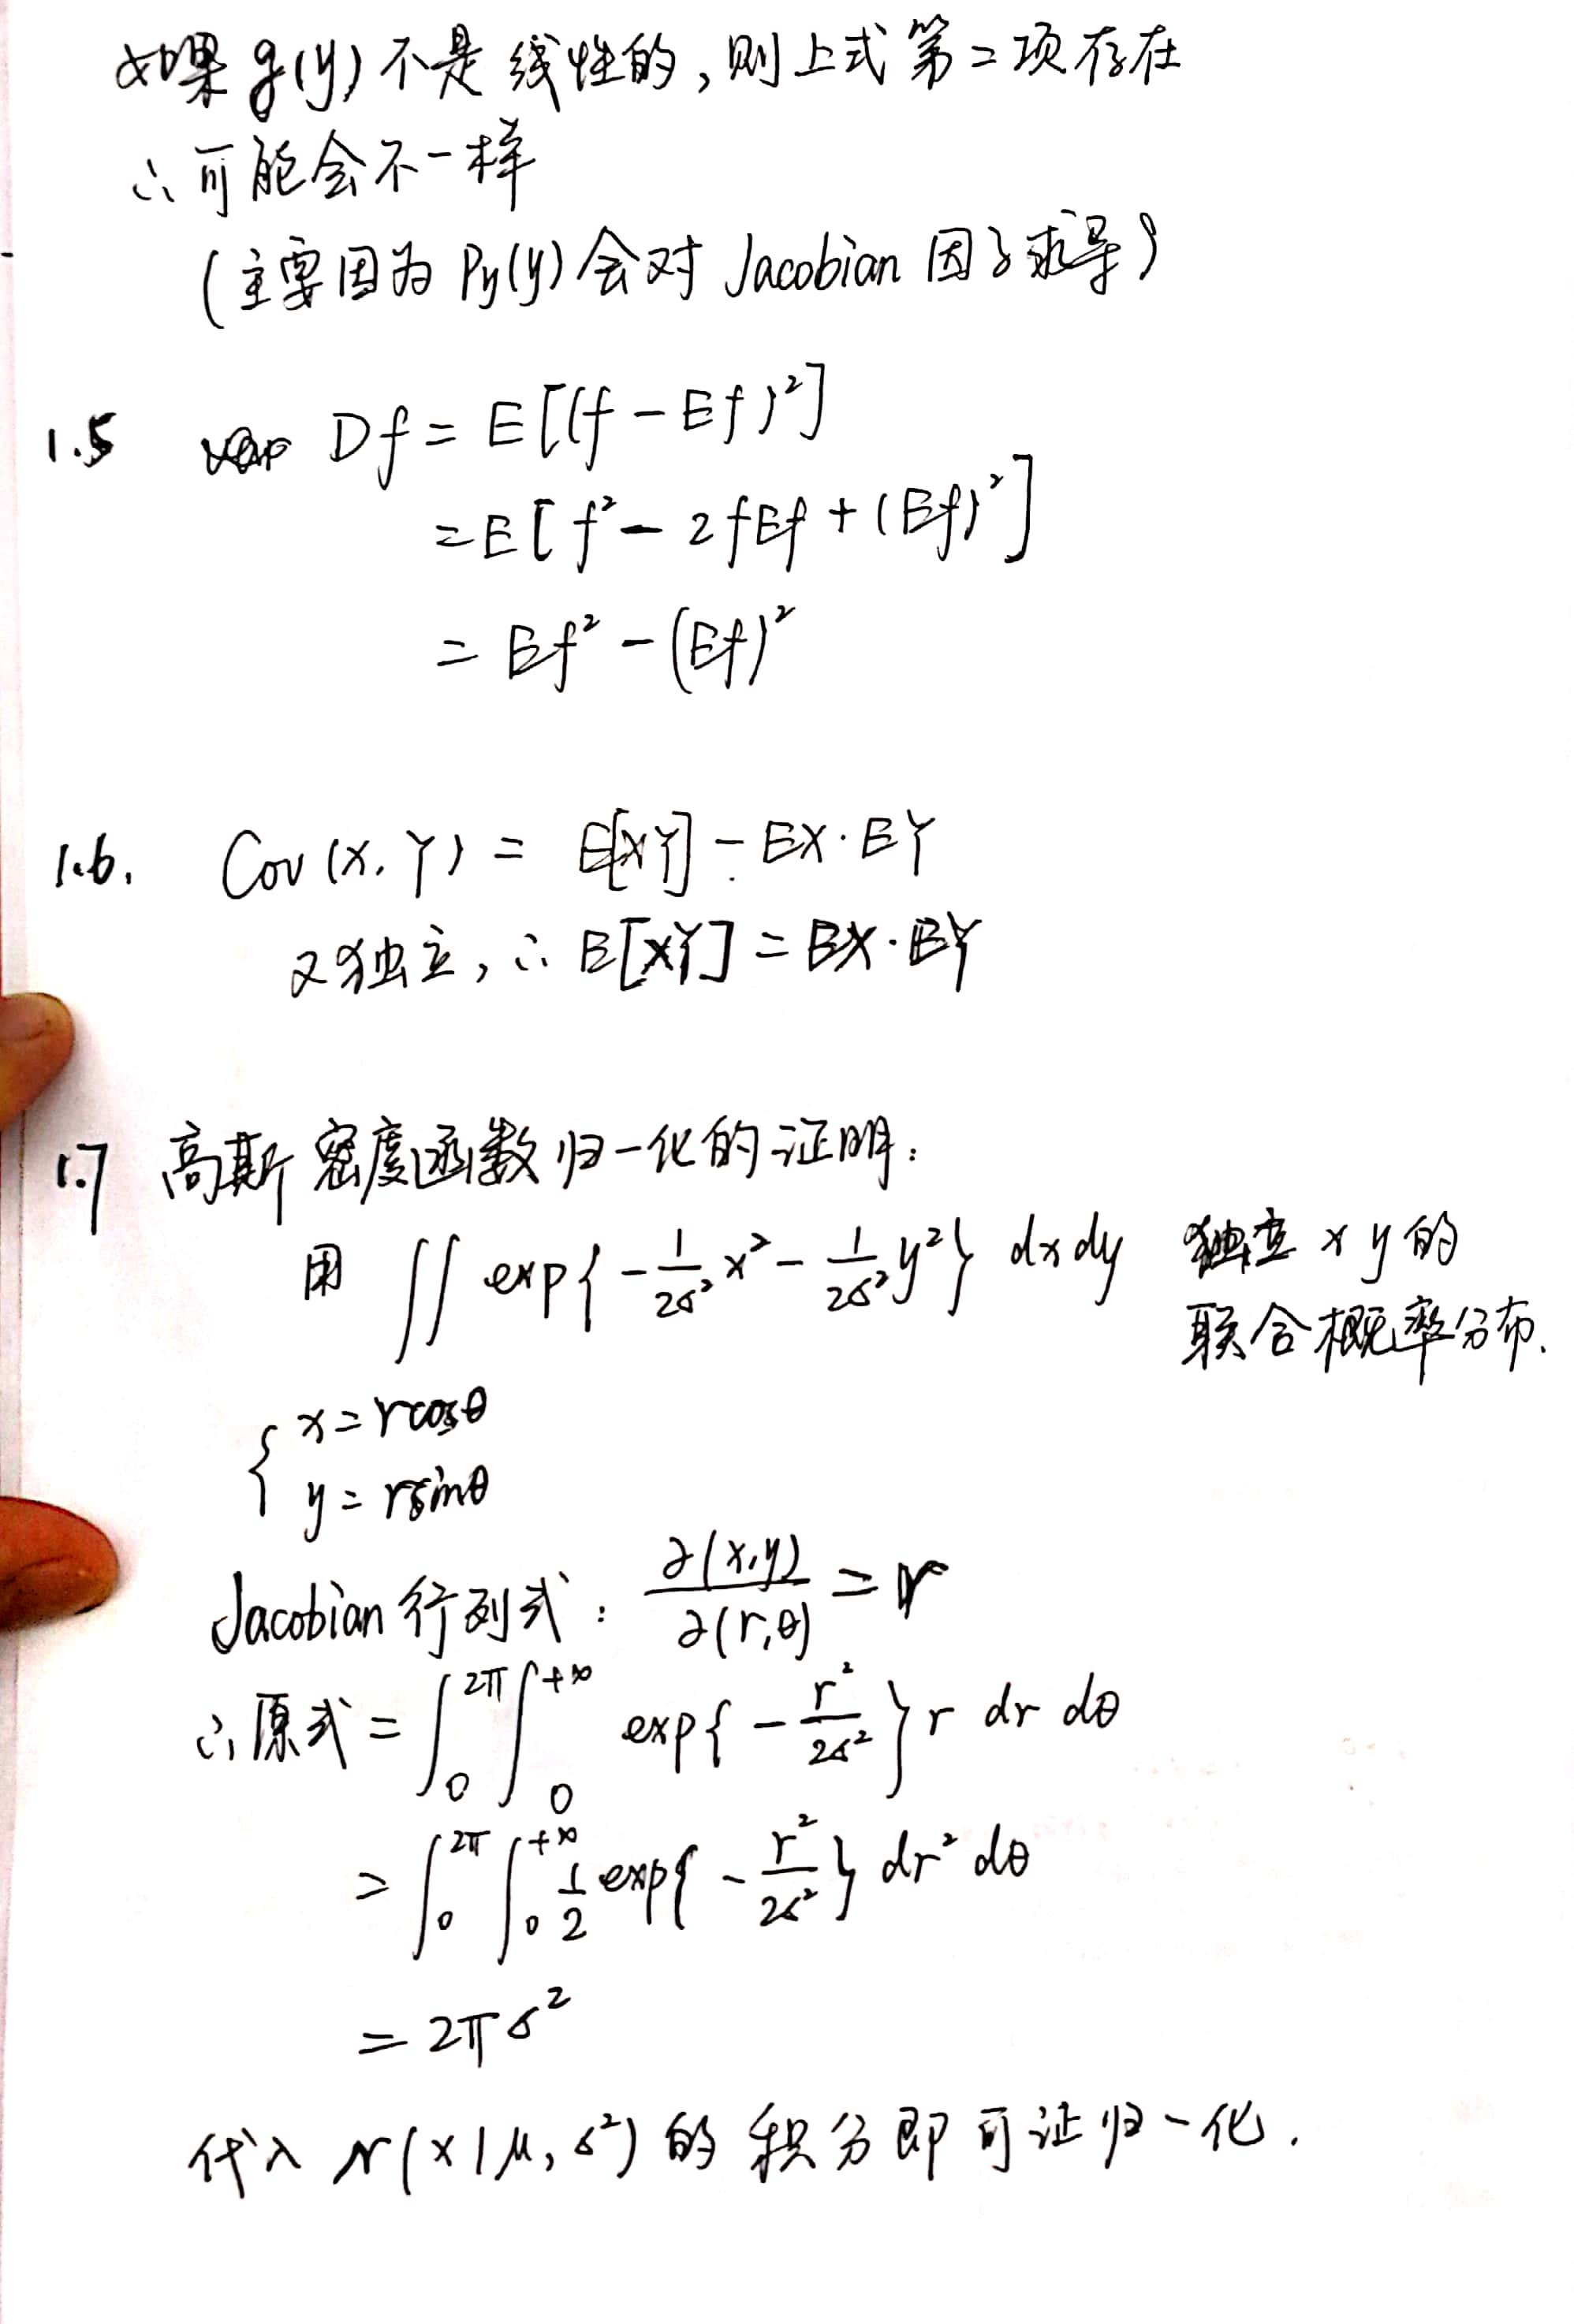 如果 g(y) 不是线性的，则上式第二项存在
∴ 可能会不一样
(主要因为 Py(y) 会对 Jacobian 因子求导)
1.5 Df = E[(f - Ef)²]
= E[f² - 2fEf + (Ef)²]
= Ef² - (Ef)²
1.6. Cov(X, Y) = E[XY] - EX·EY
又独立，∴ E[XY] = EX·EY
1.7 高斯密度函数归一化的证明：
用 ∬ exp{-\frac{1}{2σ²}x² - \frac{1}{2σ²}y²} dxdy 独立 x y 的
联合概率分布.
{ x = rcosθ
y = rsinθ
Jacobian 行列式：\frac{∂(x,y)}{∂(r,θ)} = r
∴ 原式 = ∫_0^{2π} ∫_0^{+∞} exp{-\frac{r²}{2σ²}} r dr dθ
= ∫_0^{2π} ∫_0^{+∞} \frac{1}{2} exp{-\frac{r²}{2σ²}} dr² dθ
= 2πσ²
代入 N(x|μ, σ²) 的积分即可证归一化.